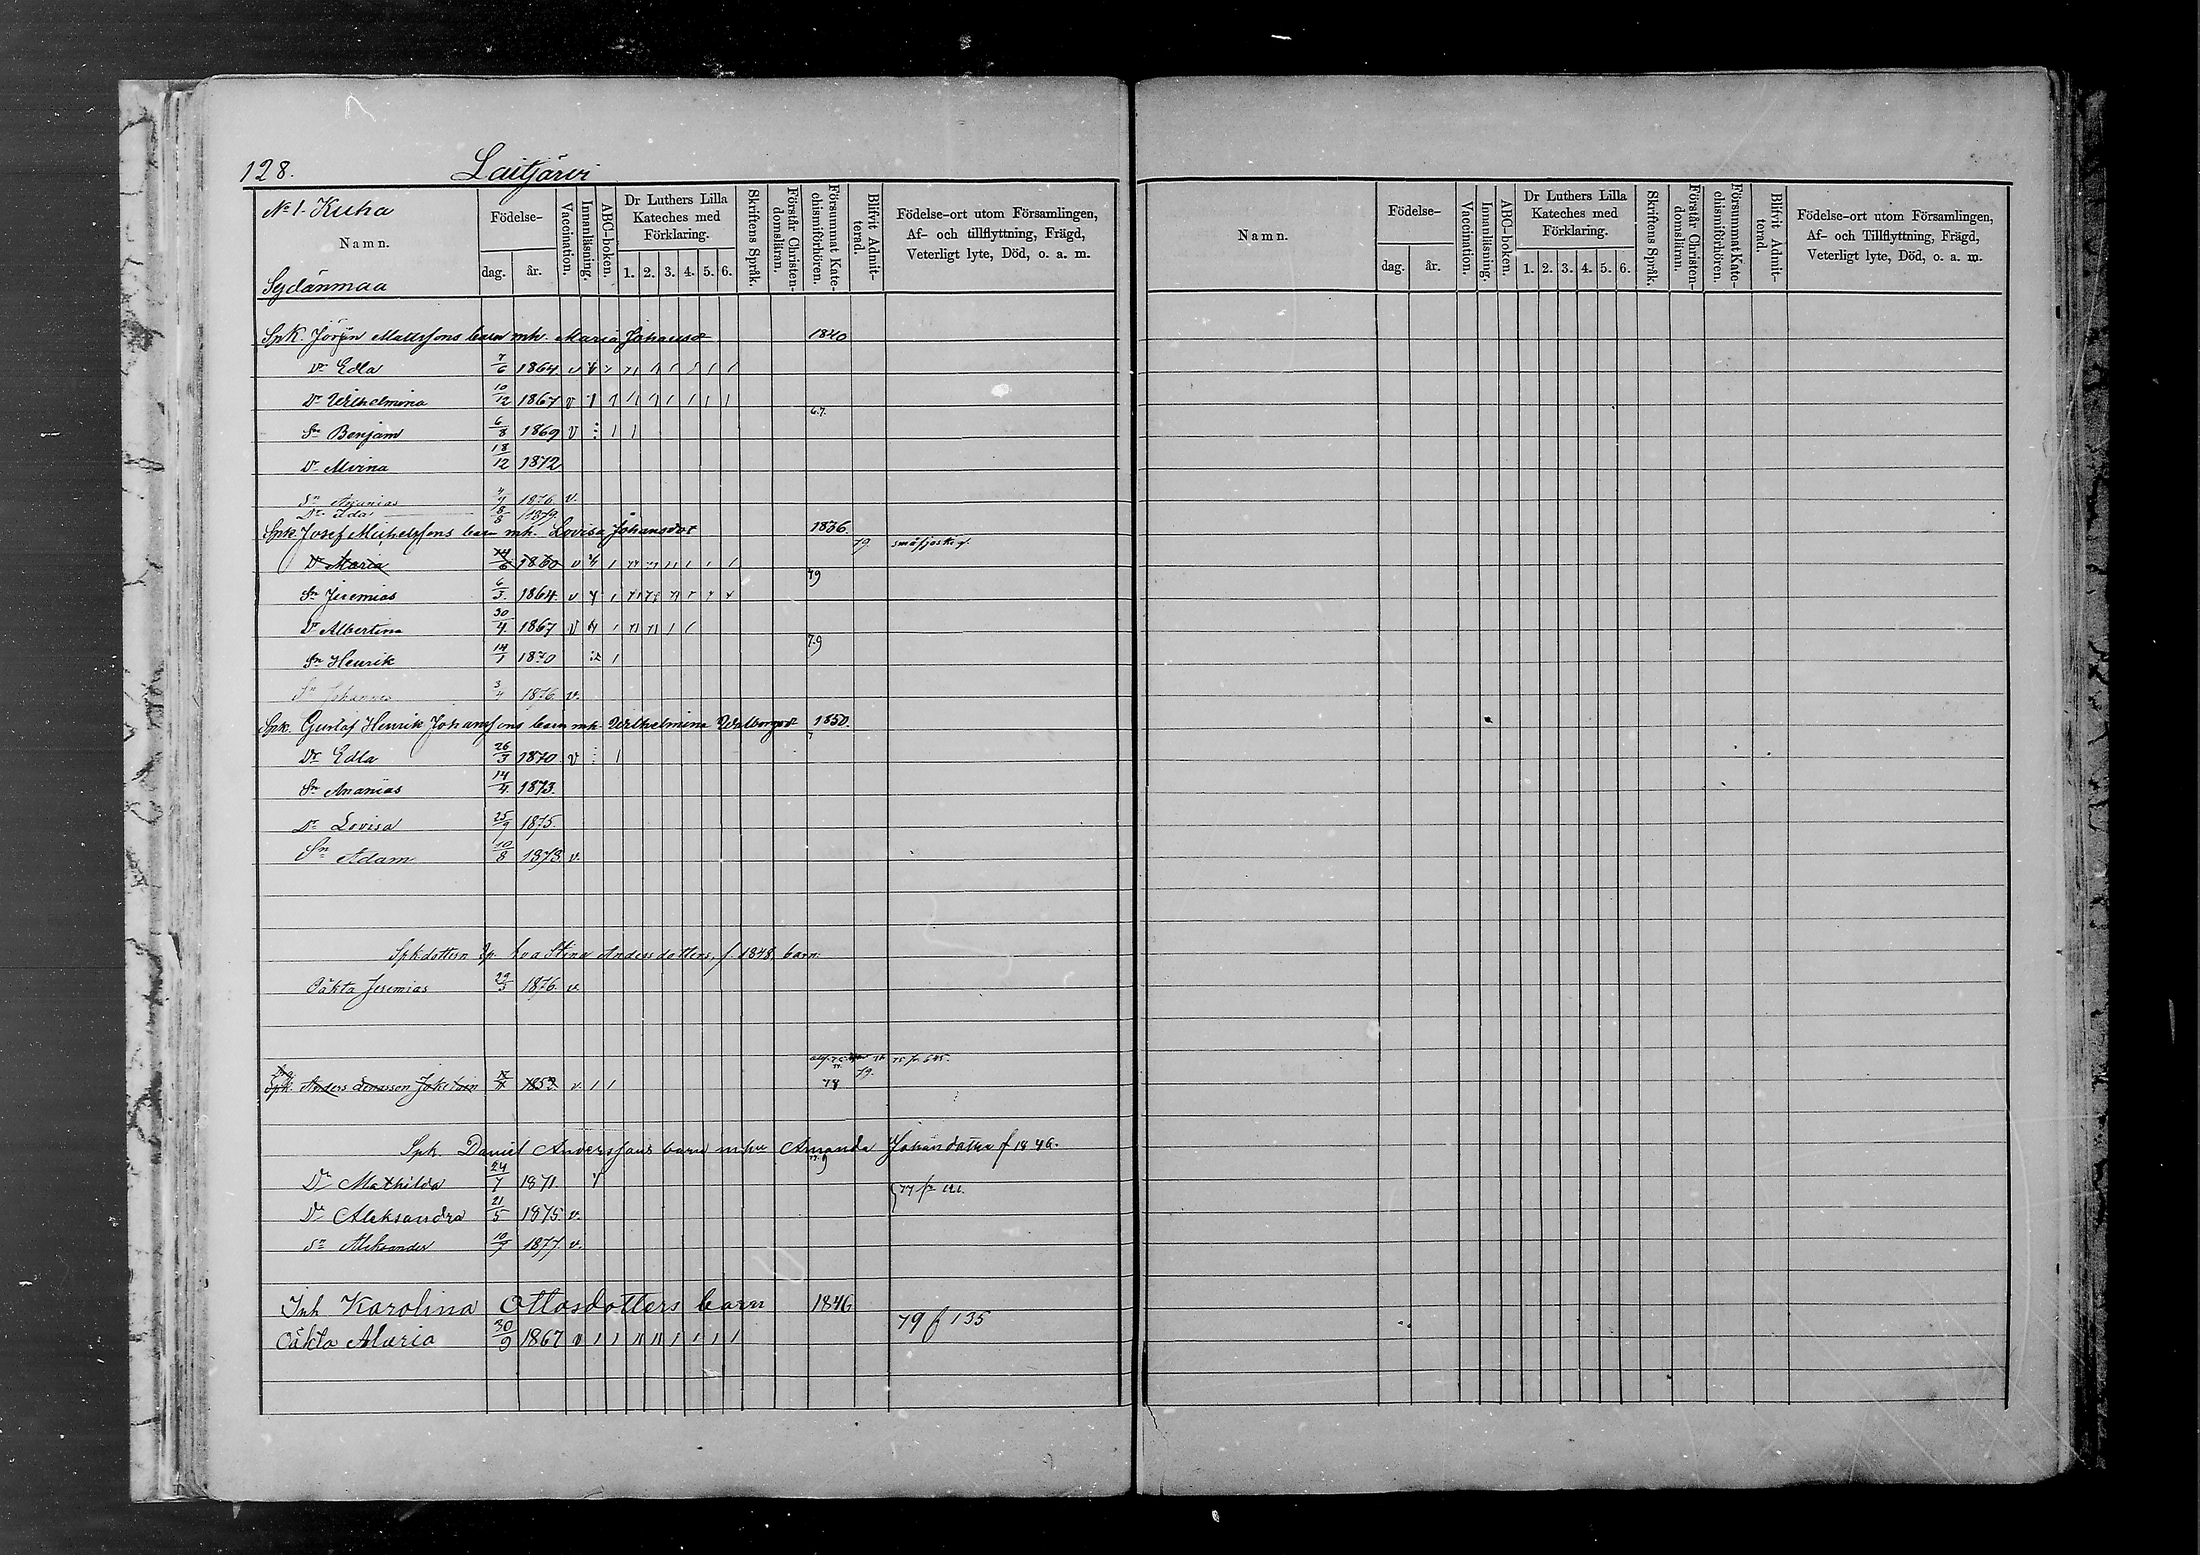 128. Laitjärvi
No 1. Kuha
Namn.
Sydänmaa
Födelse-
dag. år.
Vaccination.
Innanläsning.
ABC-boken.
Dr Luthers Lilla Kateches med Förklaring.
1. 2. 3. 4. 5. 6.
Skriftens Språk.
Förstår Christendomsläran.
Försummat Katechismiförhören.
Blifvit Admitterad.
Födelse-ort utom Församlingen,
Af- och tillflyttning, Frägd,
Veterligt lyte, Död, o. a. m.
Spk. Mattssons barn mh. Maria Johansd 1840
Dr Edla 7/6 1864 v
Dr Wilhelmina 10/12 1867 v
6.7.
Sn Benjam 6/8 1869 v
Dr Alvina 18/12 1872
Sn Ananias 1876 v.
Dr Ida 18/8 1879
Spk Josef Michelssons barn mh. Lovisa Johansdot 1836.
79.
Dr Maria 1860 v
79
Sn Jeremias 6/3. 1864. v
Dr Albertina 30/4. 1867 v
7.9
Sn Henrik 14/1 1870
Sn Johannes 1876. v.
Spk. Gustaf Henrik Johanssons barn mh. Wilhelmina Walborgsd 1850.
7
Dr Edla 26/3 1870 v
Sn Ananias 14/4. 1873.
Dr Lovisa 25/9 1875.
Sn Adam 10/8 1878 v.
Spkdottern Eva Stina Andersdotters, f. 1848 barn.
Oäkta Jeremias 29/3 1876. v.
75 fr 645.
79.
Spk. Anders 1853. v. 78
Spk Daniel Anderssons barn m hu Amanda Johansdotter f 1846.
77.9
Dr Mathilda 24/7 1871
77 fr
Dr Aleksandra 21/5 1875 v.
Sn Aleksander 10/9 1877 v.
Inh Karolina Ottosdotters barn 1846
79 f 135
Oäkta Maria 30/9 1867 v
Namn.
Födelse-
dag. år.
Vaccination.
Innanläsning.
ABC-boken.
Dr Luthers Lilla Kateches med Förklaring.
1. 2. 3. 4. 5. 6.
Skriftens Språk.
Förstår Christendomsläran.
Försummat Katechismiförhören.
Blifvit Admitterad.
Födelse-ort utom Församlingen,
Af- och Tillflyttning, Frägd,
Veterligt lyte, Död, o. a. m.